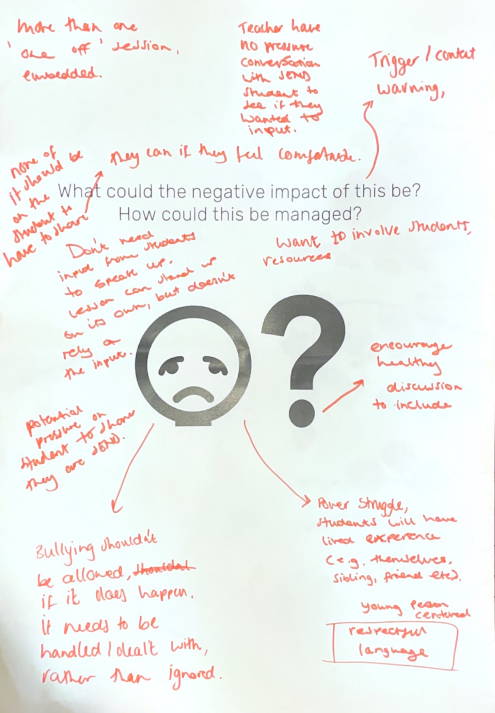 more than one
'one off' session,
embedded.
Teacher have
no pressure
conversation
with SEND
student to
see if they
wanted to
input.
Trigger / contet
warning,
they can if they feel comfortable.
none of
it should be
on the
student to
have to share
What could the negative impact of this be?
How could this be managed?
Want to involve students,
resources
Don't need
input from students
to speak up.
Lesson can stand up
on its own, but doesn't
rely on
the input.
encourage
healthy
discussion
to include
potential
pressure on
student to share
they are SEND.
Bullying shouldn't
be allowed, shouldn't
if it does happen.
it needs to be
handled / dealt with,
rather than ignored.
Power struggle,
students will have
lived experience
(e.g. themselves,
sibling, friend etc).
young person
centered
respectful
language